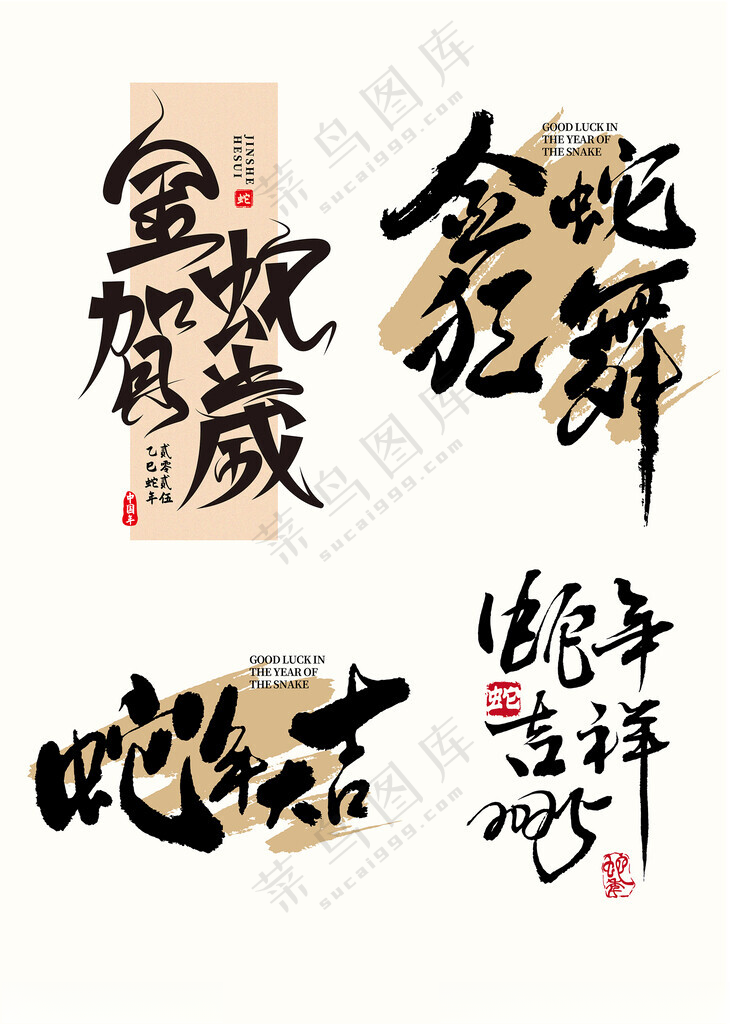 金蛇
賀歲
JINSHE
HESUI
蛇
貳零貳伍
乙巳蛇年
中国年
GOOD LUCK IN
THE YEAR OF
THE SNAKE
金蛇
狂舞
GOOD LUCK IN
THE YEAR OF
THE SNAKE
蛇年大吉
蛇年
吉祥
蛇
蛇年
菜鸟图库
sucai999.com
菜鸟图库
sucai999.com
菜鸟图库
sucai999.com
菜鸟图库
sucai999.com